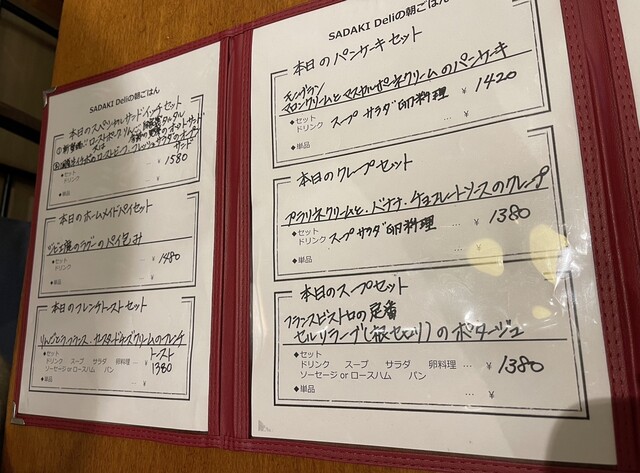 SADAKI Deliの朝ごはん
本日のスペシャルサンドイッチセット
サンド
◆セット
ドリンク … ¥ 1580
◆単品 … ¥
本日のホームメイドパイセット
ジビエ のラグーのパイ包み
◆セット
ドリンク … ¥ 1480
◆単品 … ¥
本日のフレンチトーストセット
りんごとラフランス、カスタードチーズクリームのフレンチ
トースト
◆セット
ドリンク スープ サラダ 卵料理 … ¥ 1380
ソーセージ or ロースハム パン
◆単品 … ¥
SADAKI Deliの朝ごはん
本日のパンケーキセット
モンブラン
マロンクリームとマスカルポーネクリームのパンケーキ
◆セット
ドリンク スープ サラダ 卵料理 … ¥ 1420
◆単品 … ¥
本日のクレープセット
プラリネクリームと、バナナ、チョコレートソースのクレープ
◆セット
ドリンク スープ サラダ 卵料理 … ¥ 1380
◆単品 … ¥
本日のスープセット
フランスビストロの定番
セルリラーブ(根セロリ)のポタージュ
◆セット
ドリンク スープ サラダ 卵料理 … ¥ 1380
ソーセージ or ロースハム パン
◆単品 … ¥